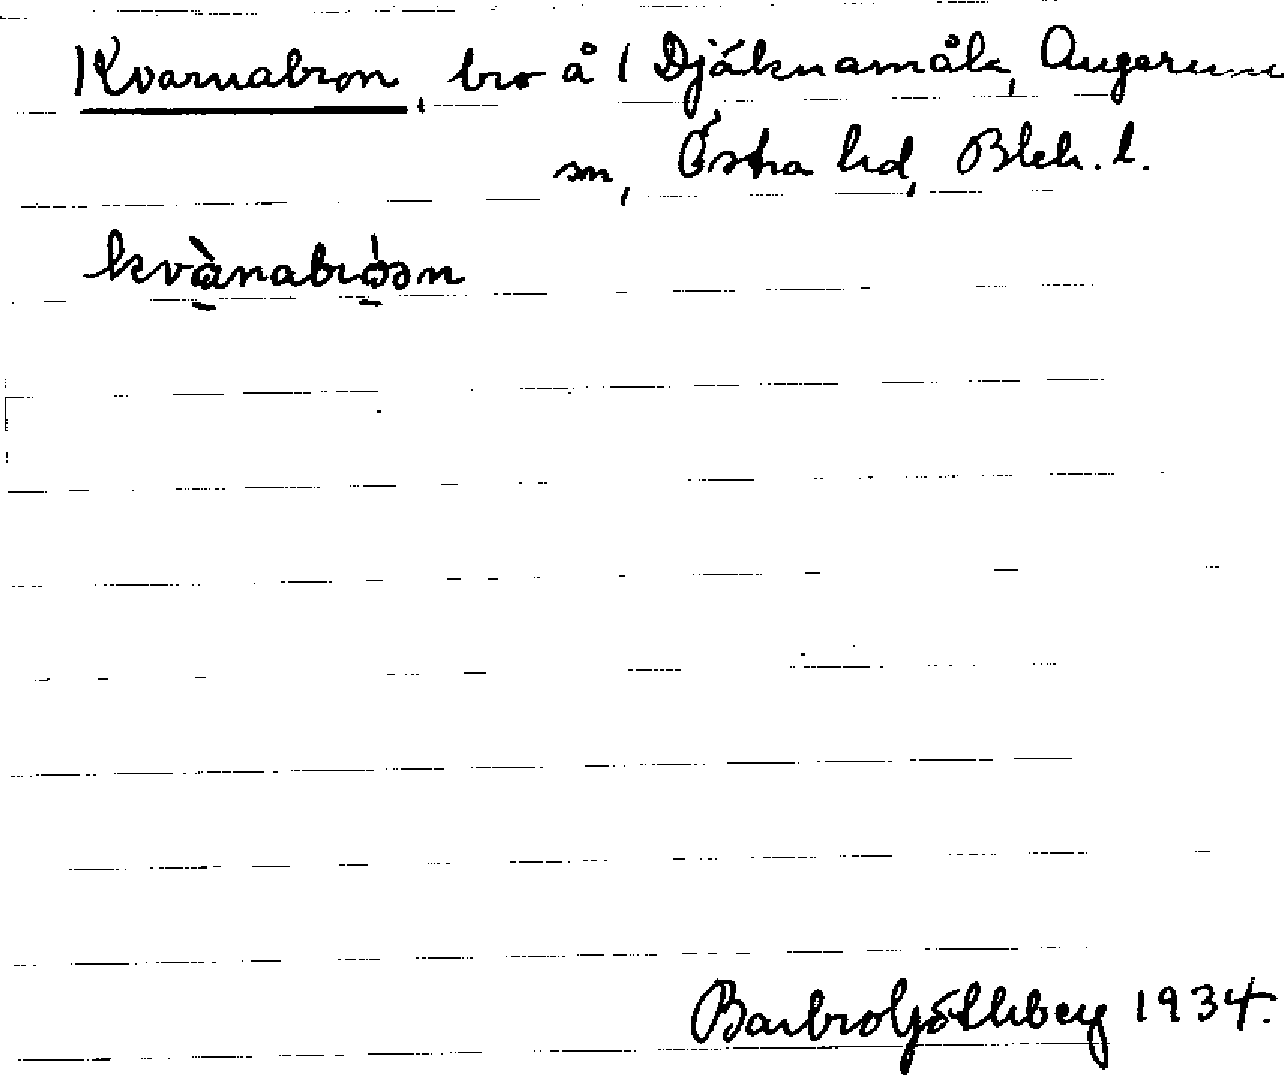 Kvarnabron, bro å i Djäknamåla, Augerums
sn, Östra hd, Blek. l.
kvànabróən
Barbro Göthberg 1934.